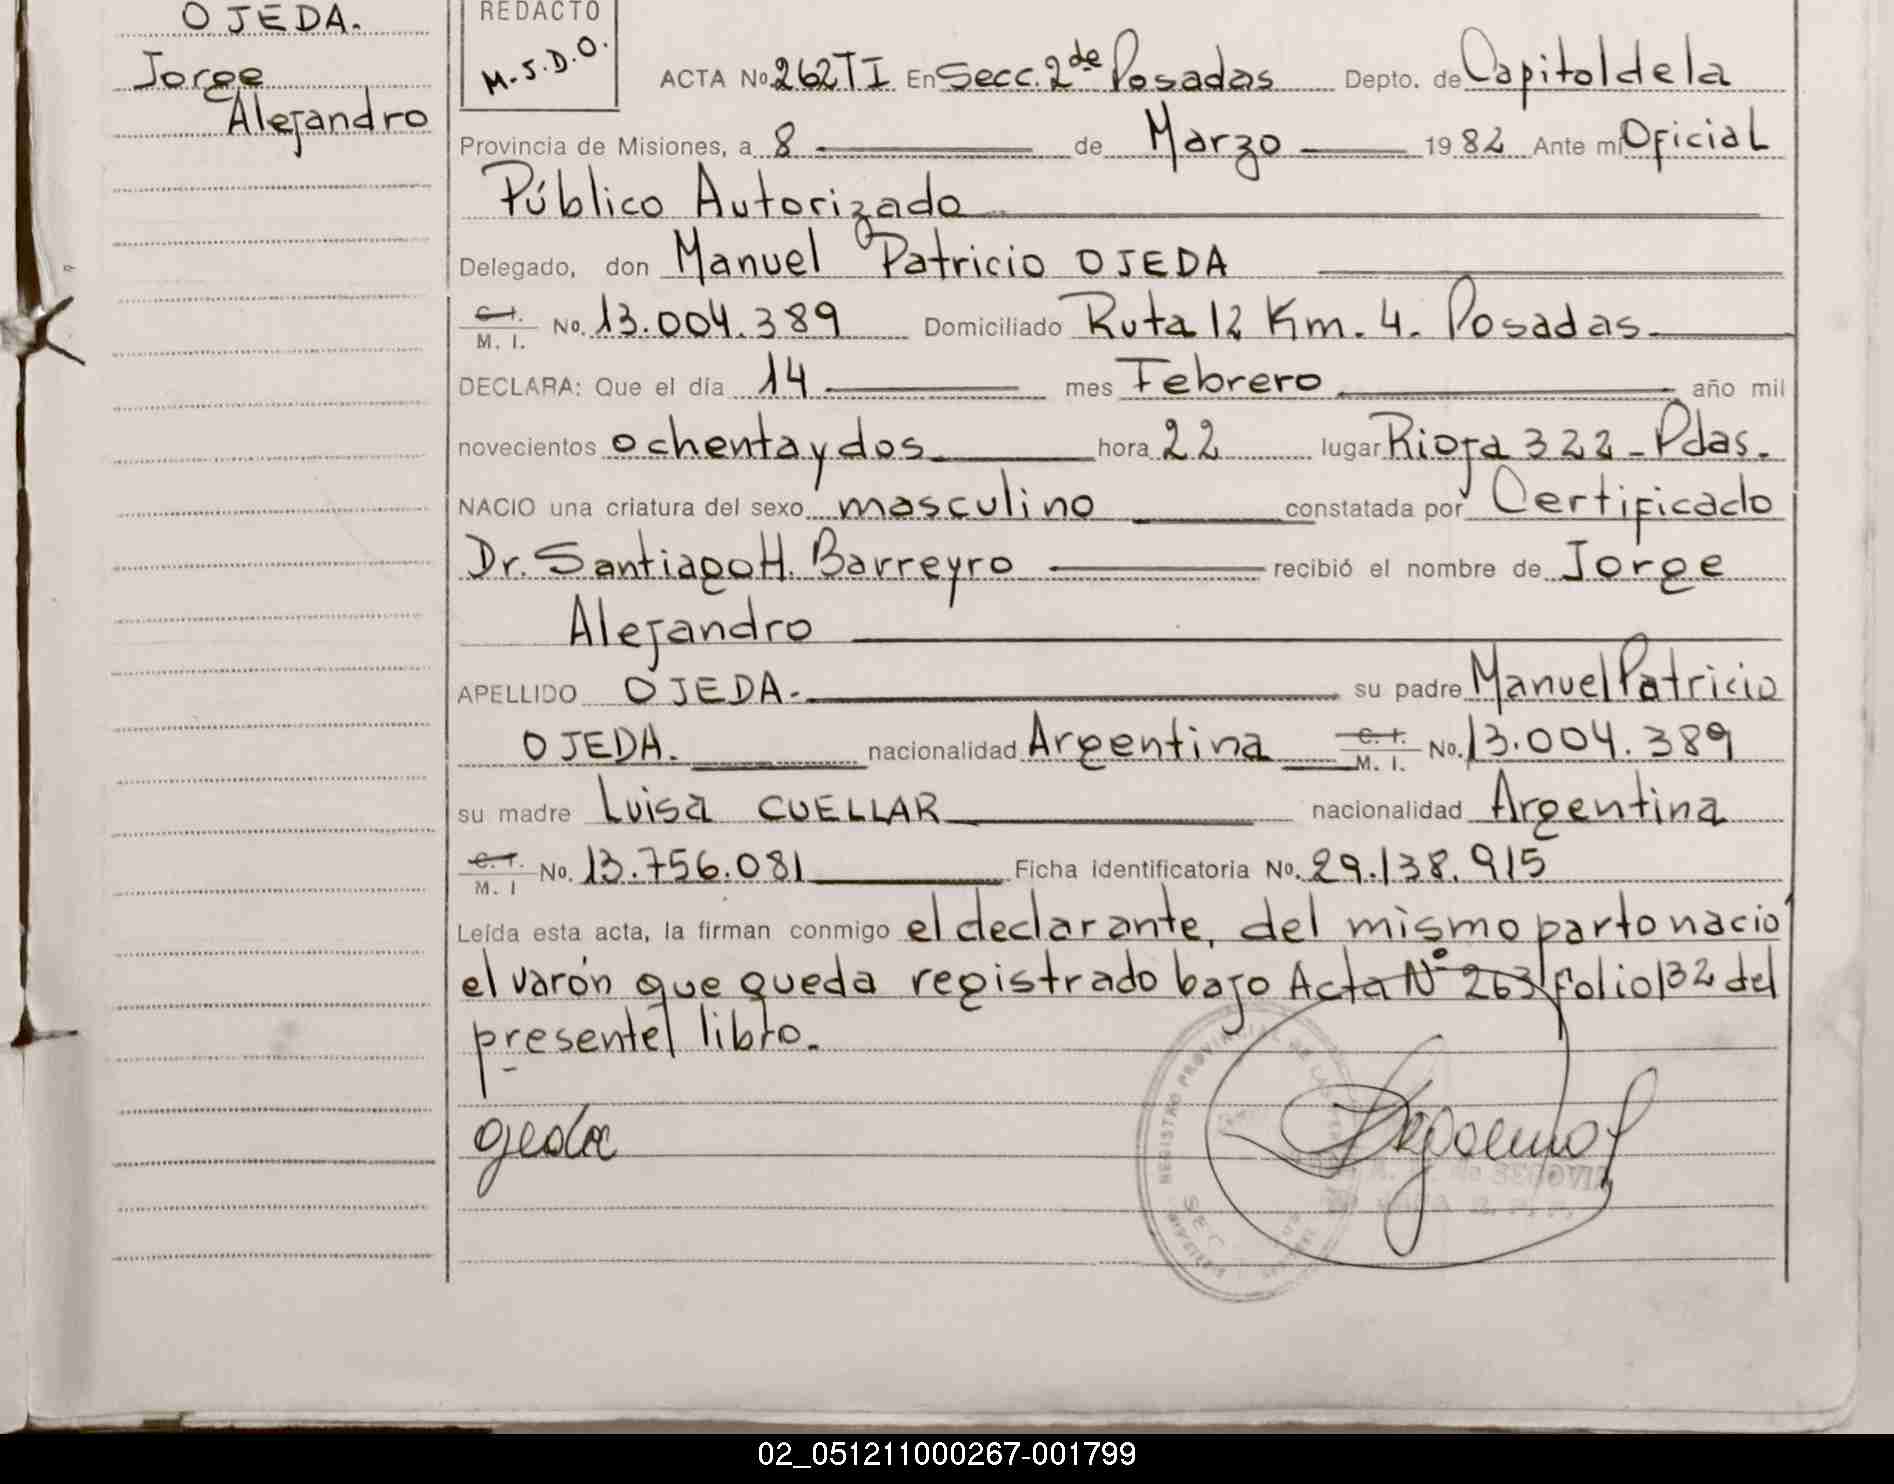 OJEDA.
Jorge
Alejandro
REDACTO
M.S.D.O.
ACTA No. 262TI En Secc. 2da Posadas Depto. de Capital de la
Provincia de Misiones, a 8 de Marzo 1982 Ante mi Oficial
Público Autorizado
Delegado, don Manuel Patricio OJEDA
C. I. M. I. No. 13.004.389 Domiciliado Ruta 12 Km. 4. Posadas
DECLARA: Que el día 14 mes Febrero año mil
novecientos ochenta y dos hora 22 lugar Rioja 322 - Pdas.
NACIO una criatura del sexo masculino constatada por Certificado
Dr. Santiago H. Barreyro recibió el nombre de Jorge
Alejandro
APELLIDO OJEDA.- su padre Manuel Patricio
OJEDA. nacionalidad Argentina C. I. M. I. No. 13.004.389
su madre Luisa CUELLAR nacionalidad Argentina
C. I. M. I No. 13.756.081 Ficha identificatoria No. 29.138.915
Leída esta acta, la firman conmigo el declarante, del mismo parto nació
el varón que queda registrado bajo Acta Nº 263 folio 132 del
presente libro.
Ojeda
REGISTRO PROVINCIAL DE LAS
DE SEGOVIA
02_051211000267-001799